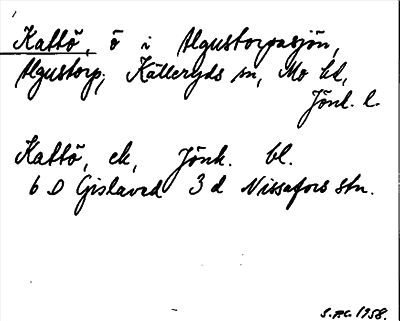 Kattö, ö i Algustorpasjön,
Algustorp, Källeryds sn, Mo hd,
Jönk. l.
Kattö, ek, Jönk. bl.
6 D Gislaved 3 d Nissafors stn.
1958.